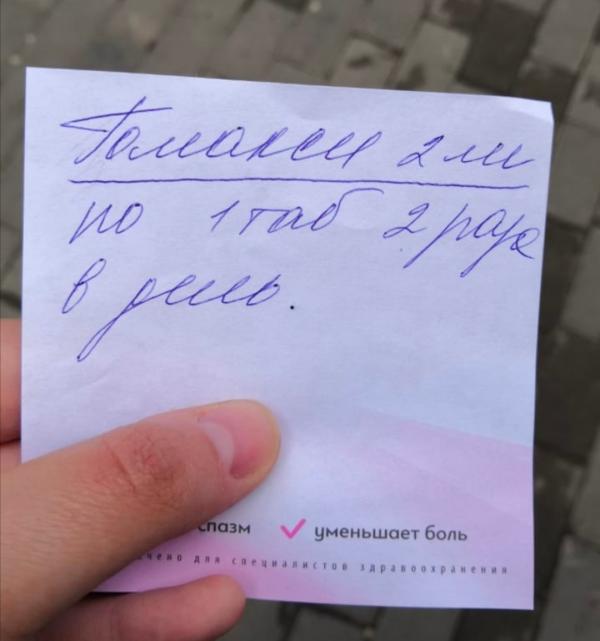 2
по 1 таб 2 раза
в день.
спазм ✓ уменьшает боль
чено для специалистов здравоохранения